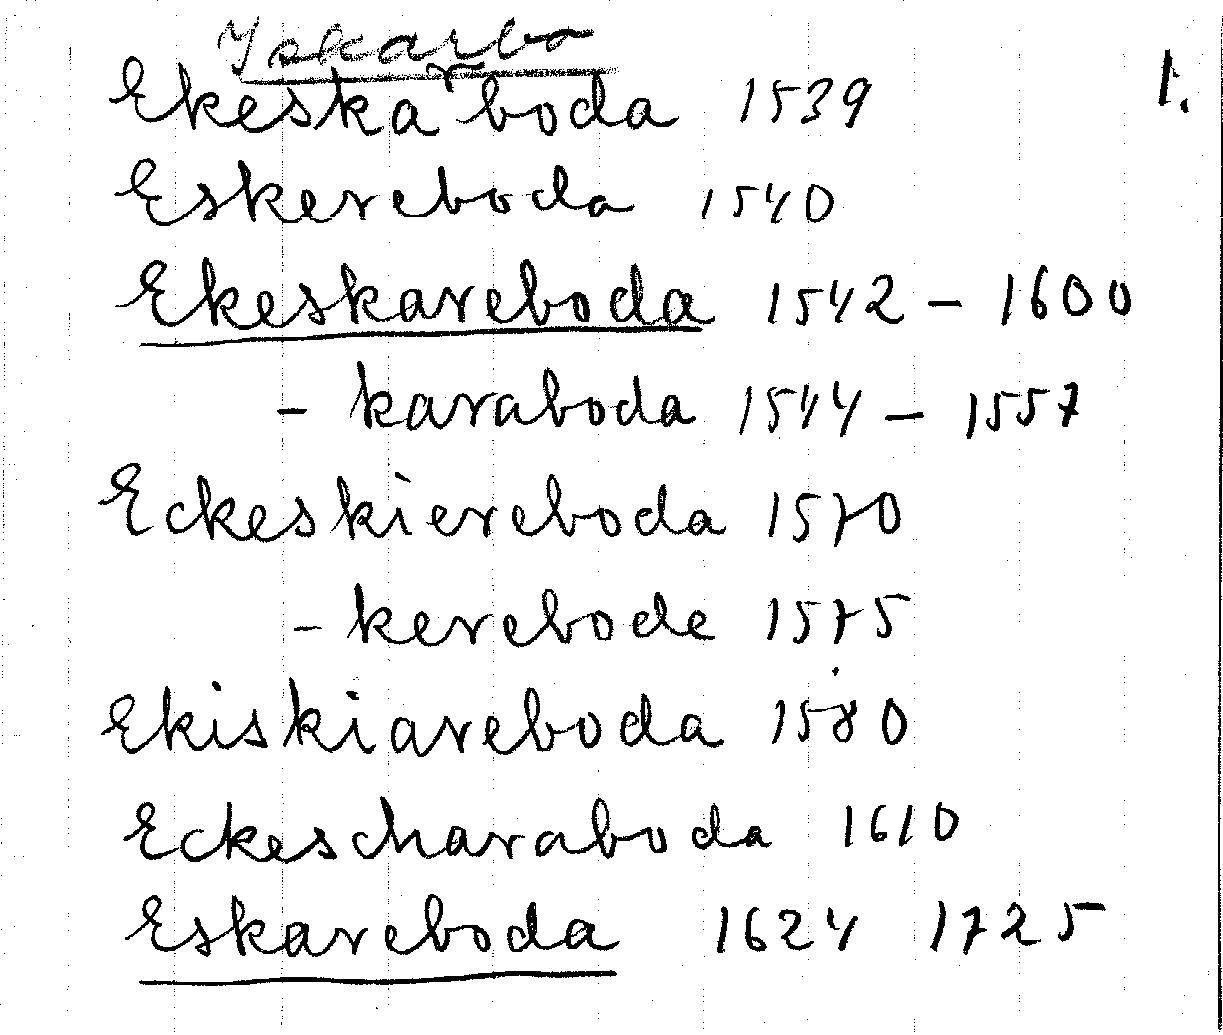 Iskarbo
Ekeskarboda 1539 1.
Eskereboda 1540
Ekeskareboda 1542 - 1600
- karaboda 1544 - 1557
Eckeskiereboda 1570
- kerebode 1575
Ekiskiareboda 1580
Eckescharaboda 1610
Eskareboda 1624 1725